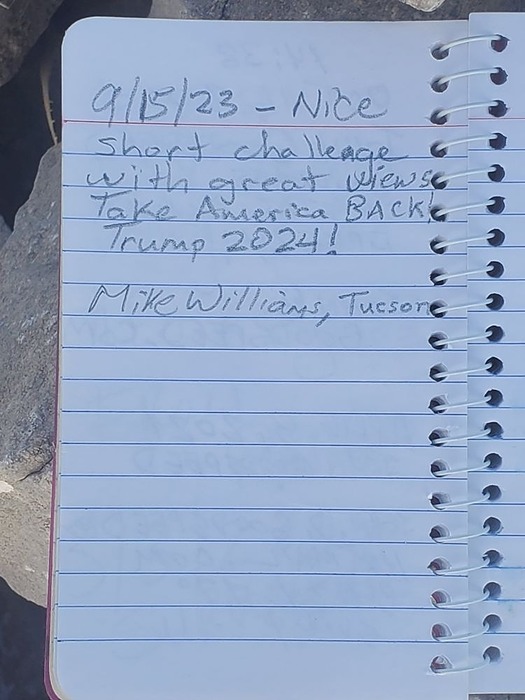 9/15/23 - Nice
short challenge
with great views
Take America BACK!
Trump 2024!
Mike Williams, Tucson